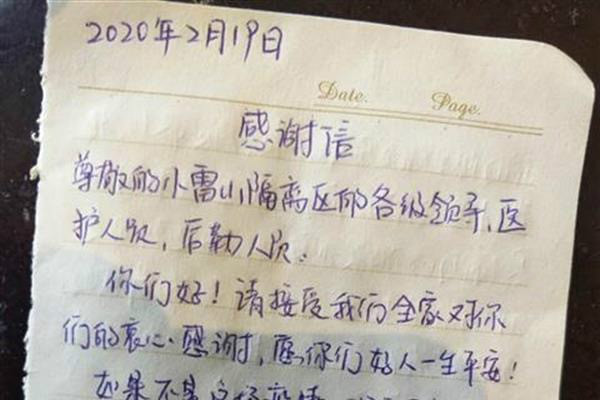 2020年2月19日
Date. Page.
感谢信
尊敬的小雷山隔离区的各级领导、医
护人员,后勤人员:
你们好!请接受我们全家对你
们的衷心感谢,愿你们好人一生平安!
如果不是这场疫情